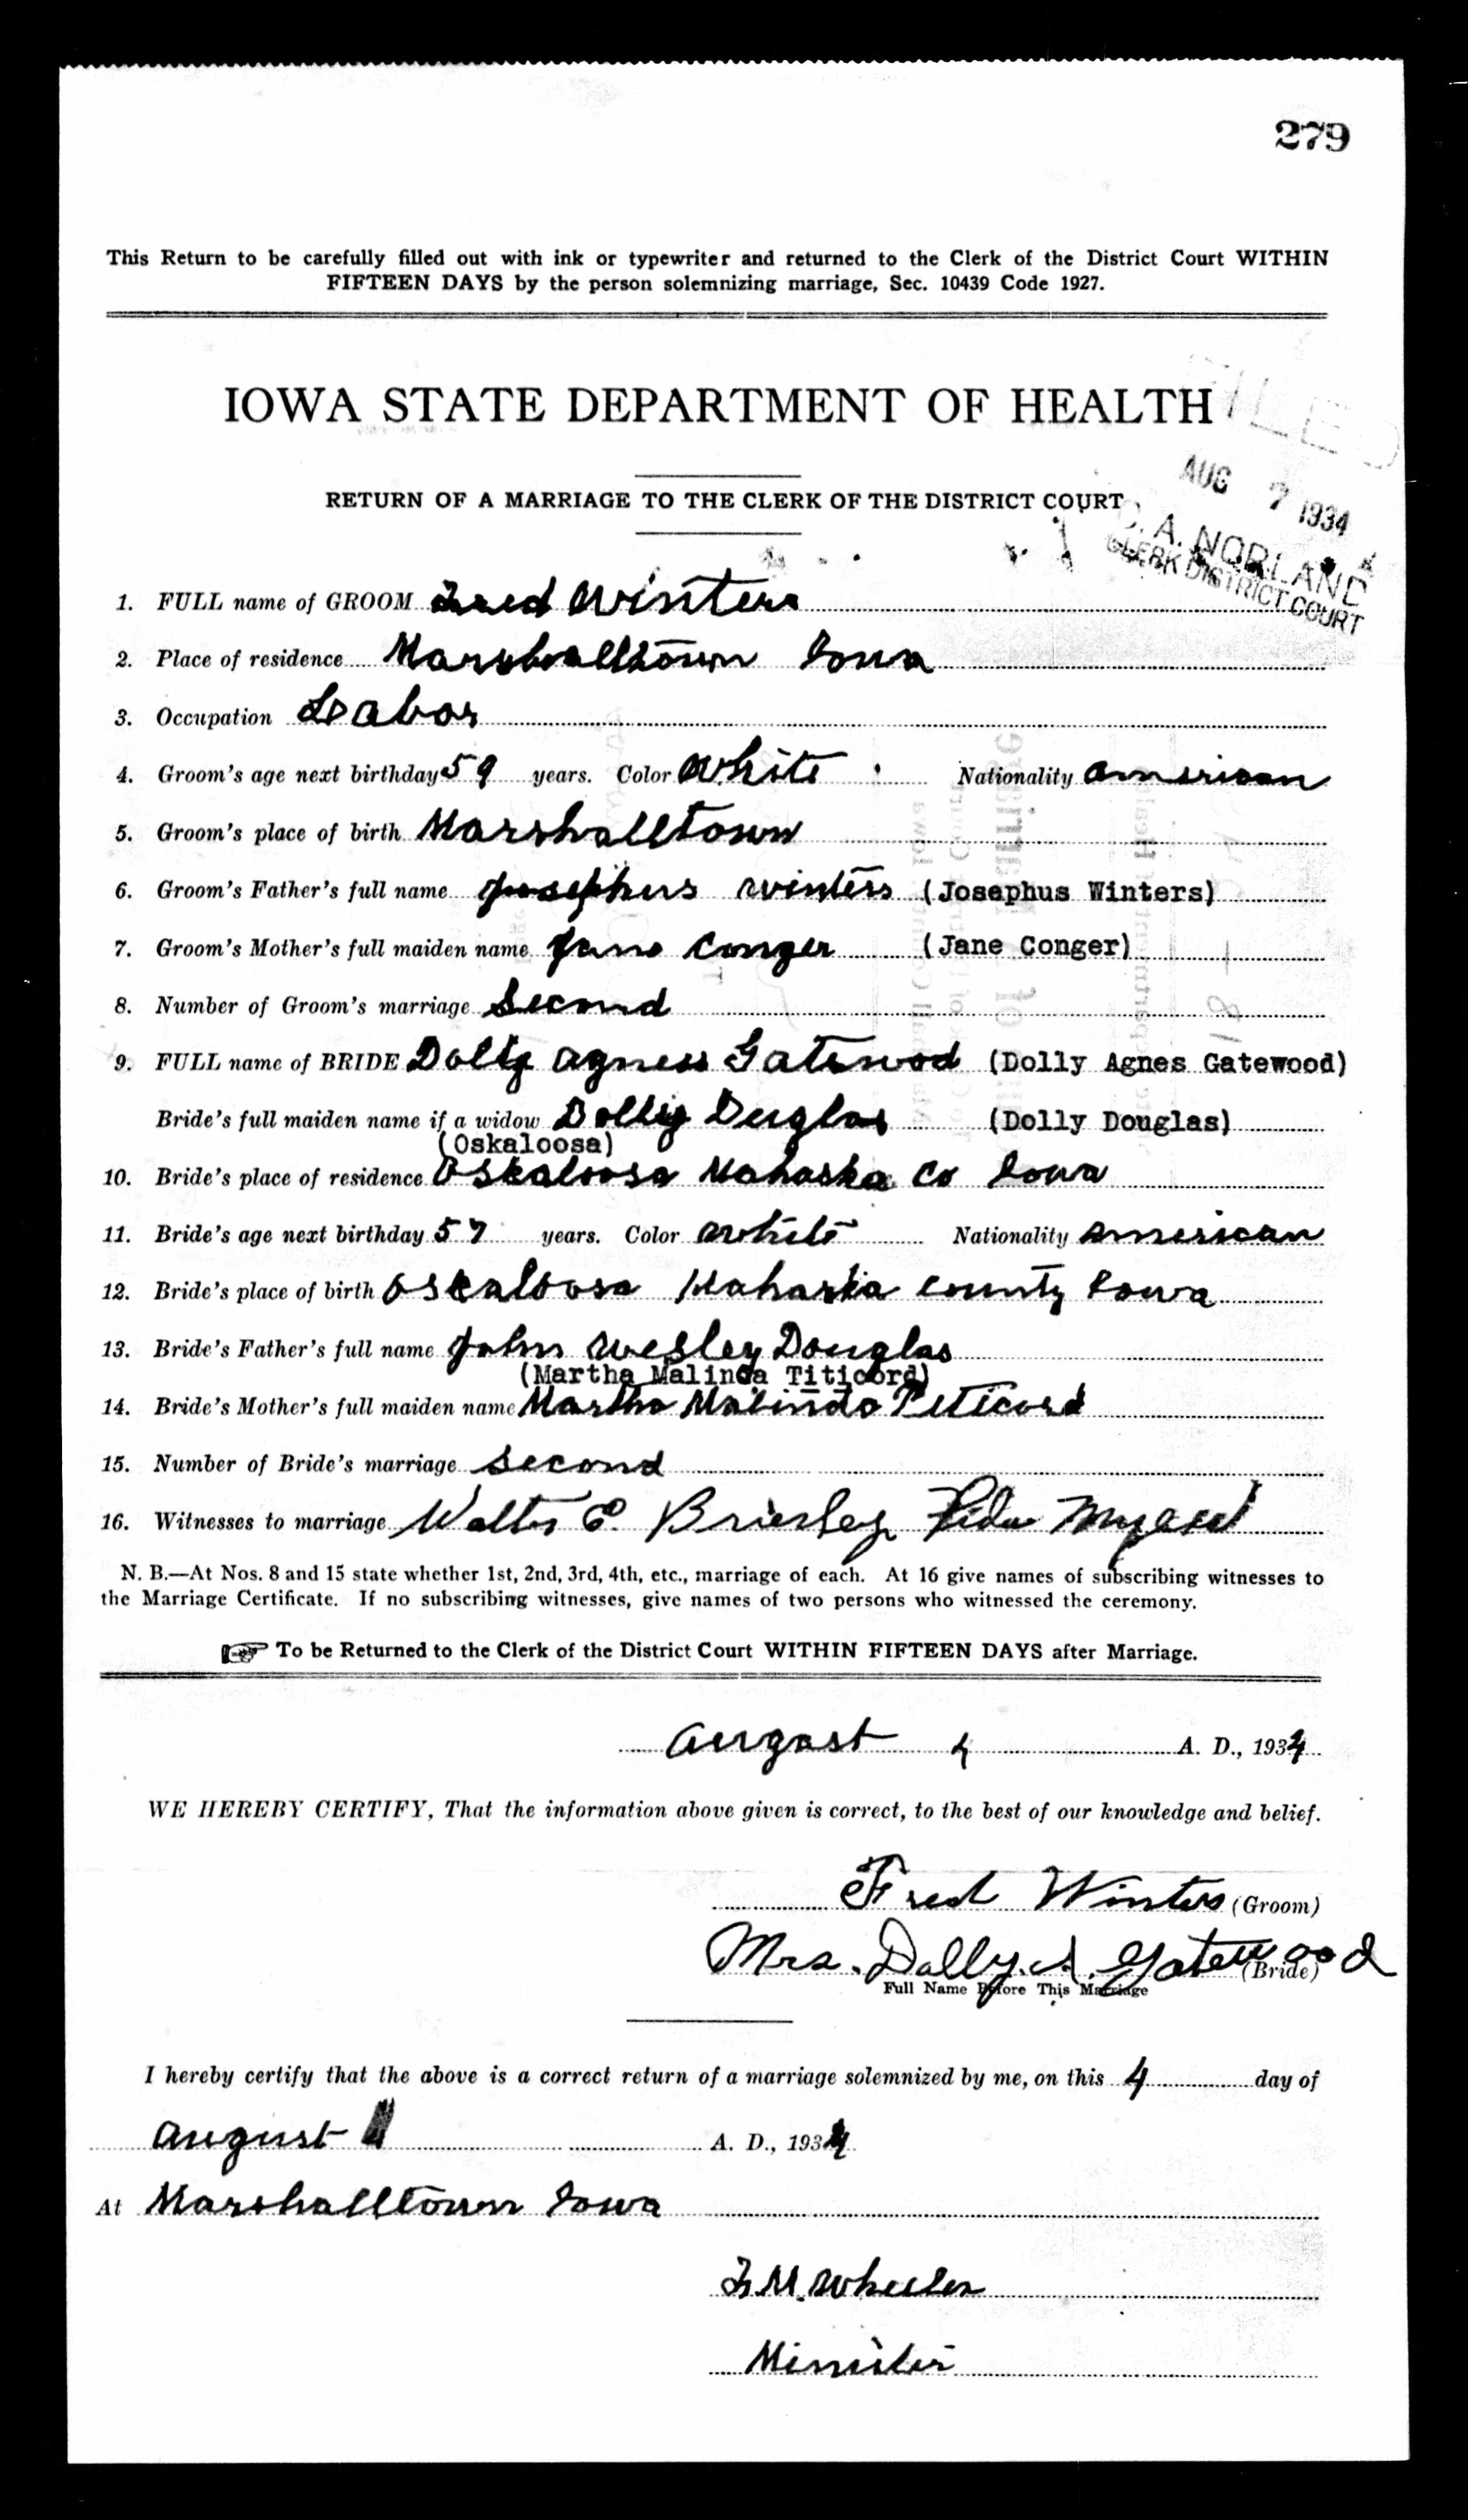 279
This Return to be carefully filled out with ink or typewriter and returned to the Clerk of the District Court WITHIN
FIFTEEN DAYS by the person solemnizing marriage, Sec. 10439 Code 1927.
IOWA STATE DEPARTMENT OF HEALTH
FILED
RETURN OF A MARRIAGE TO THE CLERK OF THE DISTRICT COURT
AUG 7 1934
A. NORLAND
CLERK DISTRICT COURT
1. FULL name of GROOM Fred Winters
2. Place of residence Marshalltown Iowa
3. Occupation Labor
4. Groom's age next birthday 59 years. Color White Nationality American
5. Groom's place of birth Marshalltown
6. Groom's Father's full name Josephus Winters (Josephus Winters)
7. Groom's Mother's full maiden name Jane Conger (Jane Conger)
8. Number of Groom's marriage Second
9. FULL name of BRIDE Dolly Agness Gatewood (Dolly Agnes Gatewood)
Bride's full maiden name if a widow Dolly Duglas (Dolly Douglas)
(Oskaloosa)
10. Bride's place of residence Oskaloosa Mahaska Co Iowa
11. Bride's age next birthday 57 years. Color White Nationality American
12. Bride's place of birth Oskaloosa Mahaska County Iowa
13. Bride's Father's full name John Wesley Douglas
(Martha Malinda Titicord)
14. Bride's Mother's full maiden name Martha Malinda Titicord
15. Number of Bride's marriage Second
16. Witnesses to marriage Walter E. Briesley
N. B.—At Nos. 8 and 15 state whether 1st, 2nd, 3rd, 4th, etc., marriage of each. At 16 give names of subscribing witnesses to
the Marriage Certificate. If no subscribing witnesses, give names of two persons who witnessed the ceremony.
☞ To be Returned to the Clerk of the District Court WITHIN FIFTEEN DAYS after Marriage.
August 4 A. D., 1934
WE HEREBY CERTIFY, That the information above given is correct, to the best of our knowledge and belief.
Fred Winters (Groom)
Mrs. Dolly. A. Gatewood (Bride)
Full Name Before This Marriage
I hereby certify that the above is a correct return of a marriage solemnized by me, on this 4 day of
August A. D., 1934
At Marshalltown Iowa
F. M. Wheeler
Minister